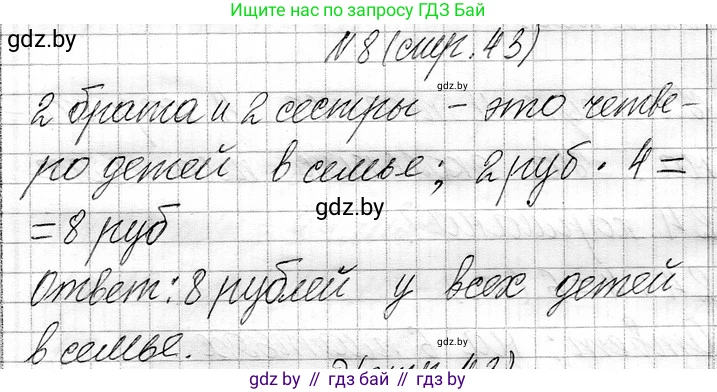 Ищите нас по запросу ГДЗ Бай
gdz.by
№8 (стр. 43)
gdz.by
2 брата и 2 сестры – это четве-
ро детей в семье; 2 руб · 4 =
gdz.by
= 8 руб
Ответ: 8 рублей у всех детей
gdz.by
в семье.
gdz.by // гдз бай // гдз.бу